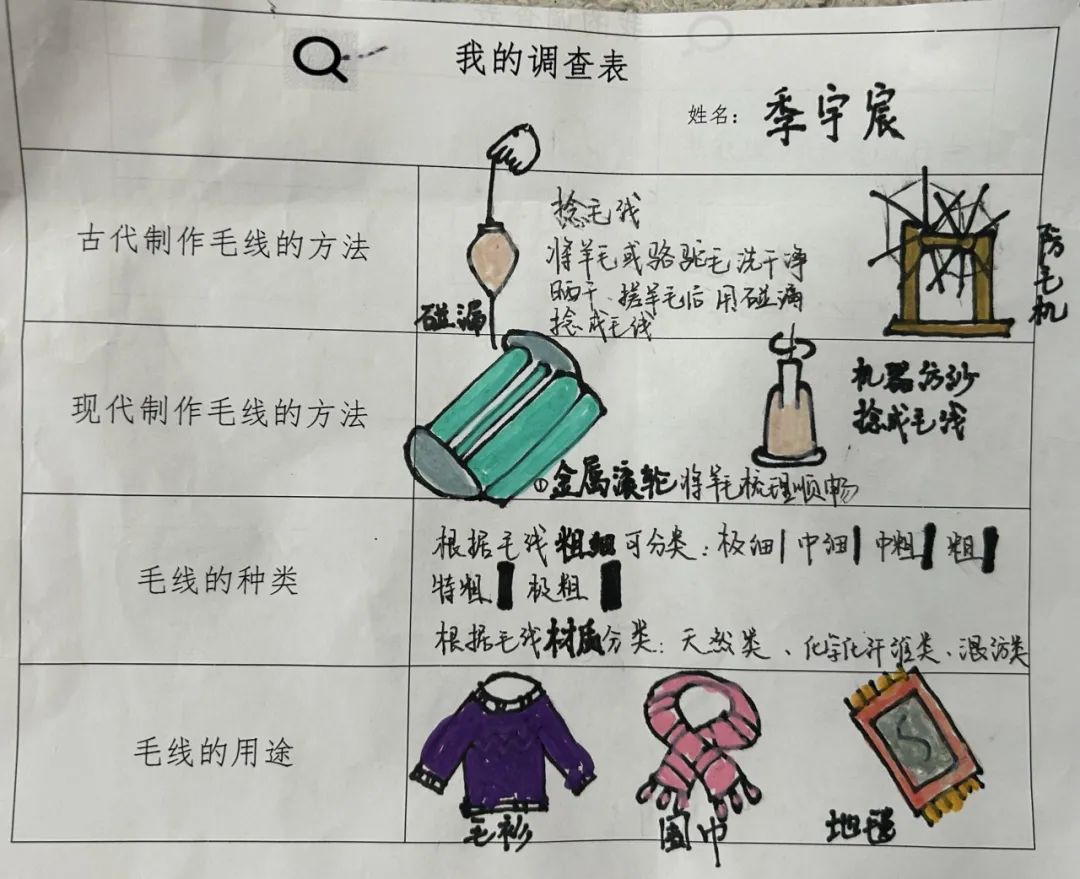 我的调查表
姓名：季宇宸
古代制作毛线的方法
碰漏
捻毛线
将羊毛或骆驼毛洗干净
晒干、搓羊毛后用碰漏
捻成毛线
防毛机
现代制作毛线的方法
①金属滚轮将羊毛梳理顺畅
机器仿纱
捻成毛线
毛线的种类
根据毛线粗细可分类：极细 中细 中粗 粗
特粗 极粗
根据毛线材质分类：天然类、化学化纤维类、混纺类
毛线的用途
毛衫
围巾
地毯